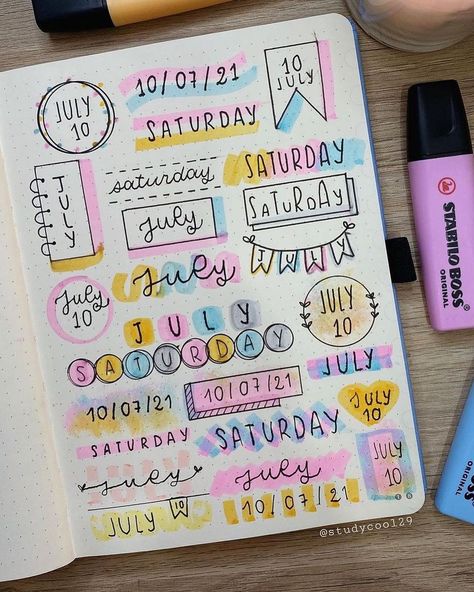 JULY 10
10/07/21
10 JULY
SATURDAY
SATURDAY
saturday
JULY
SATURDAY
July
JULY
July
July 10
JULY 10
JULY
SATURDAY
JULY
10/07/21
10/07/21
JULY 10
SATURDAY
SATURDAY
JULY
July
JULY 10
JULY 10
10/07/21
@studycool29
STABILO BOSS
ORIGINAL
ORIGINAL